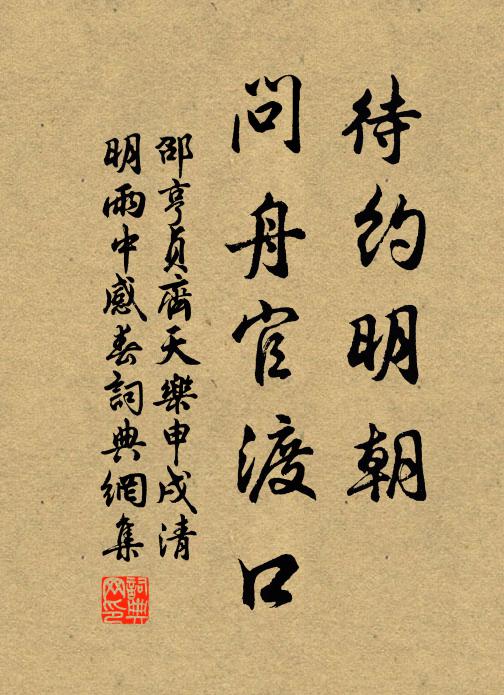 待约明朝
问舟官渡口
邵亨贞齐天樂申戌清
明雨中感春詞典網集
詞典网印